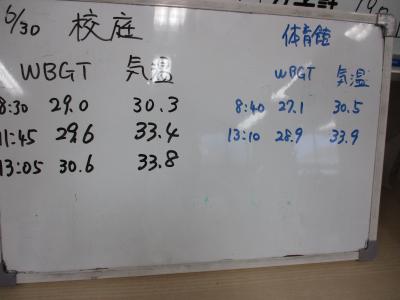 6/30 校庭 体育館
WBGT 気温 WBGT 気温
8:30 29.0 30.3 8:40 27.1 30.5
11:45 29.6 33.4 13:10 28.9 33.9
13:05 30.6 33.8